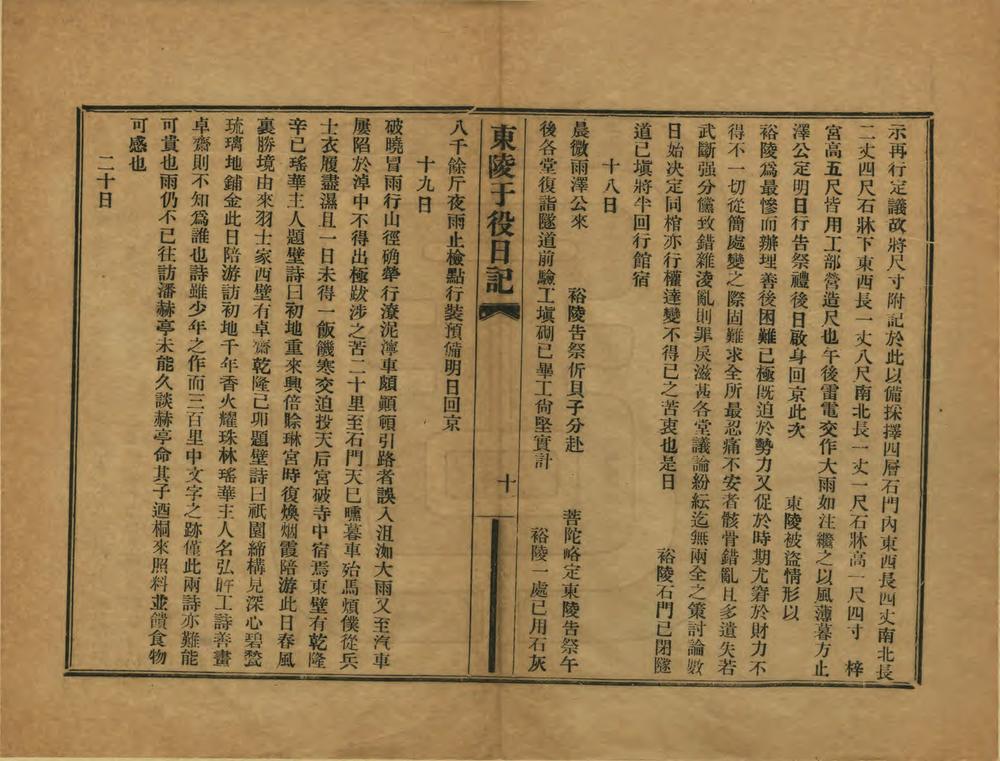 示再行定議故將尺寸附記於此以備採擇四層石門內東西長四丈南北長
二丈四尺石牀下東西長一丈八尺南北長一丈一尺石牀高一尺四寸　梓
宮高五尺皆用工部營造尺也午後雷電交作大雨如注繼之以風薄暮方止
澤公定明日行告祭禮後日啟身回京此次　東陵被盜情形以
裕陵為最慘而辦理善後困難已極既迫於勢力又促於時期尤窘於財力不
得不一切從簡處變之際固難求全所最忍痛不安者骸骨錯亂且多遺失若
武斷强分儻致錯雜淩亂則罪戾滋甚各堂議論紛紜迄無兩全之策討論數
日始决定同棺亦行權達變不得已之苦衷也是日　裕陵石門已閉隧
道已塡將半回行館宿
十八日
晨微雨澤公來　裕陵告祭伒貝子分赴　菩陀峪定東陵告祭午
後各堂復詣隧道前驗工塡砌已畢工尙堅實計　裕陵一處已用石灰
東陵于役日記　十
八千餘斤夜雨止檢點行裝預備明日回京
十九日
破曉冒雨行山徑确犖行潦泥濘車頗顚頓引路者誤入沮洳大雨又至汽車
屢陷於淖中不得出極跋涉之苦二十里至石門天已曛暮車殆馬煩僕從兵
士衣履盡濕且一日未得一飯饑寒交迫投天后宮破寺中宿焉東壁有乾隆
辛巳瑤華主人題壁詩曰初地重來興倍賒琳宮時復煥烟霞陪游此日春風
裏勝境由來羽士家西壁有卓齋乾隆己卯題壁詩曰祇園締構見深心碧甃
琉璃地鋪金此日陪游訪初地千年香火耀珠林瑤華主人名弘旿工詩善畫
卓齋則不知為誰也詩雖少年之作而三百里中文字之跡僅此兩詩亦難能
可貴也雨仍不已往訪潘赫亭未能久談赫亭命其子迺桐來照料並饋食物
可感也
二十日